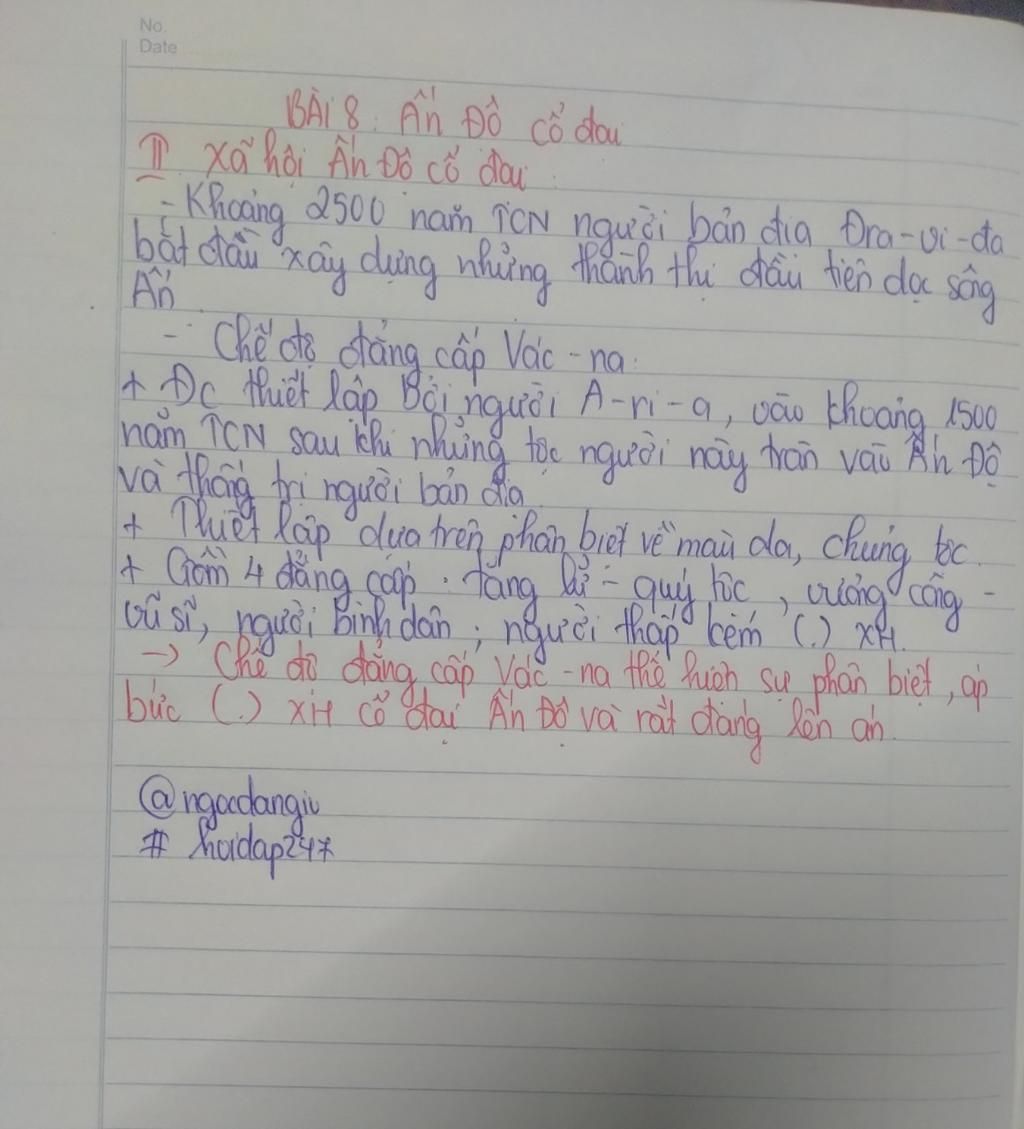 No.
Date
BÀI 8: Ấn Độ cổ đại
II Xã hội Ấn Độ cổ đại.
- Khoảng 2500 năm TCN người bản địa Đra-vi-đa
bắt đầu xây dựng những thành thị đầu tiên dọc sông
Ấn.
- Chế độ đẳng cấp Vác-na:
+ Đc thiết lập Bởi người A-ri-a, vào khoảng 1500
năm TCN sau khi những tộc người này tràn vào Ấn Độ
và thống trị người bản địa
+ Thiết lập dựa trên phân biệt về màu da, chủng tộc.
+ Gồm 4 đẳng cấp: tăng lữ - quý tộc, vương công -
vũ sĩ, người bình dân, người thấp kém (.) XH.
-> Chế độ đẳng cấp Vác-na thể hiện sự phân biệt, áp
bức (.) XH cổ đại Ấn Độ và rất đáng lên án.
@ngocdangiu
# hoidap247